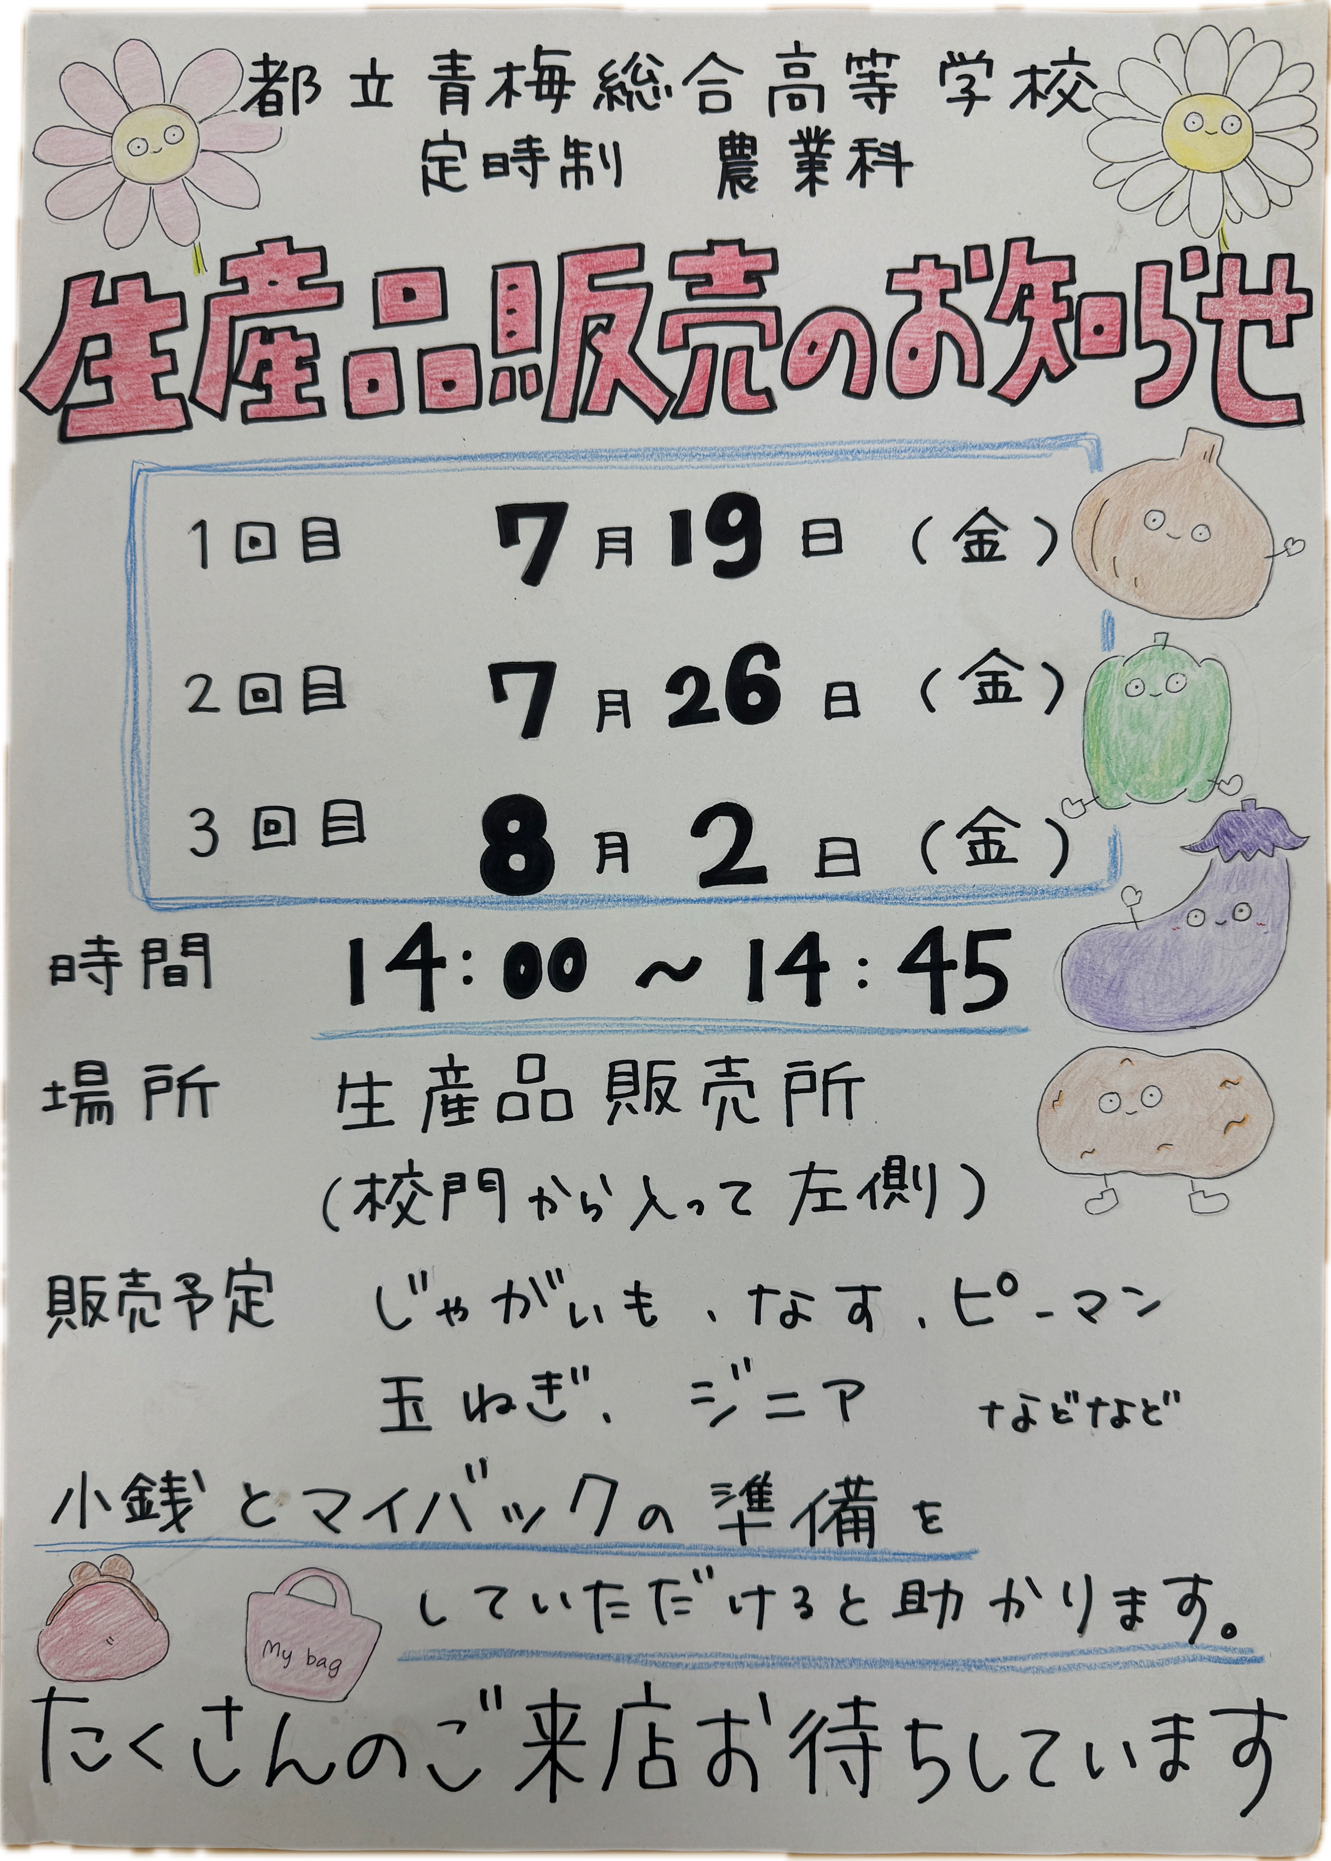 都立青梅総合高等学校
定時制 農業科
生産品販売のお知らせ
1回目 7月19日(金)
2回目 7月26日(金)
3回目 8月2日(金)
時間 14:00～14:45
場所 生産品販売所
(校門から入って左側)
販売予定 じゃがいも、なす、ピーマン
玉ねぎ、ジニア などなど
小銭とマイバックの準備を
していただけると助かります。
My bag
たくさんのご来店お待ちしています